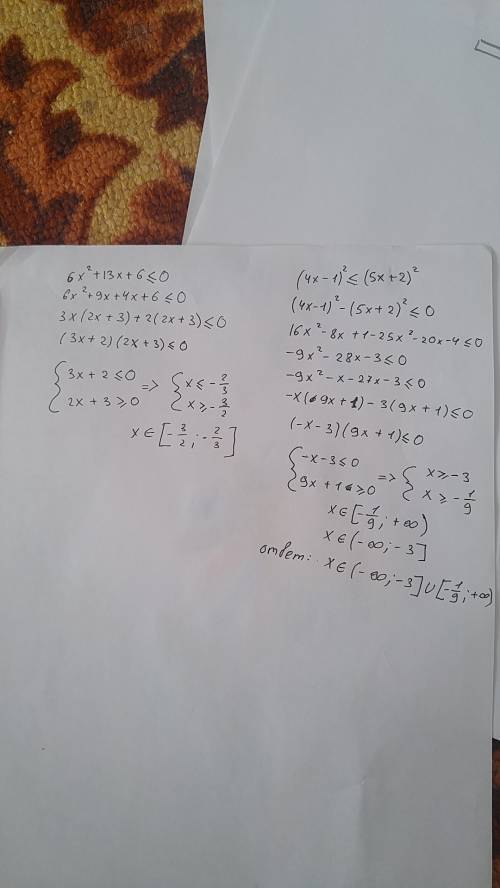 6x²+13x+6≤0
6x²+9x+4x+6≤0
3x(2x+3)+2(2x+3)≤0
(3x+2)(2x+3)≤0
{3x+2≤0 => {x≤-2/3
{2x+3≥0 {x≥-3/2
x∈[-3/2;-2/3]
(4x-1)²≤(5x+2)²
(4x-1)²-(5x+2)²≤0
16x²-8x+1-25x²-20x-4≤0
-9x²-28x-3≤0
-9x²-x-27x-3≤0
-x(9x+1)-3(9x+1)≤0
(-x-3)(9x+1)≤0
{-x-3≤0 => {x≥-3
{9x+1≥0 {x≥-1/9
x∈[-1/9;+∞)
x∈(-∞;-3]
ответ: x∈(-∞;-3]∪[-1/9;+∞)